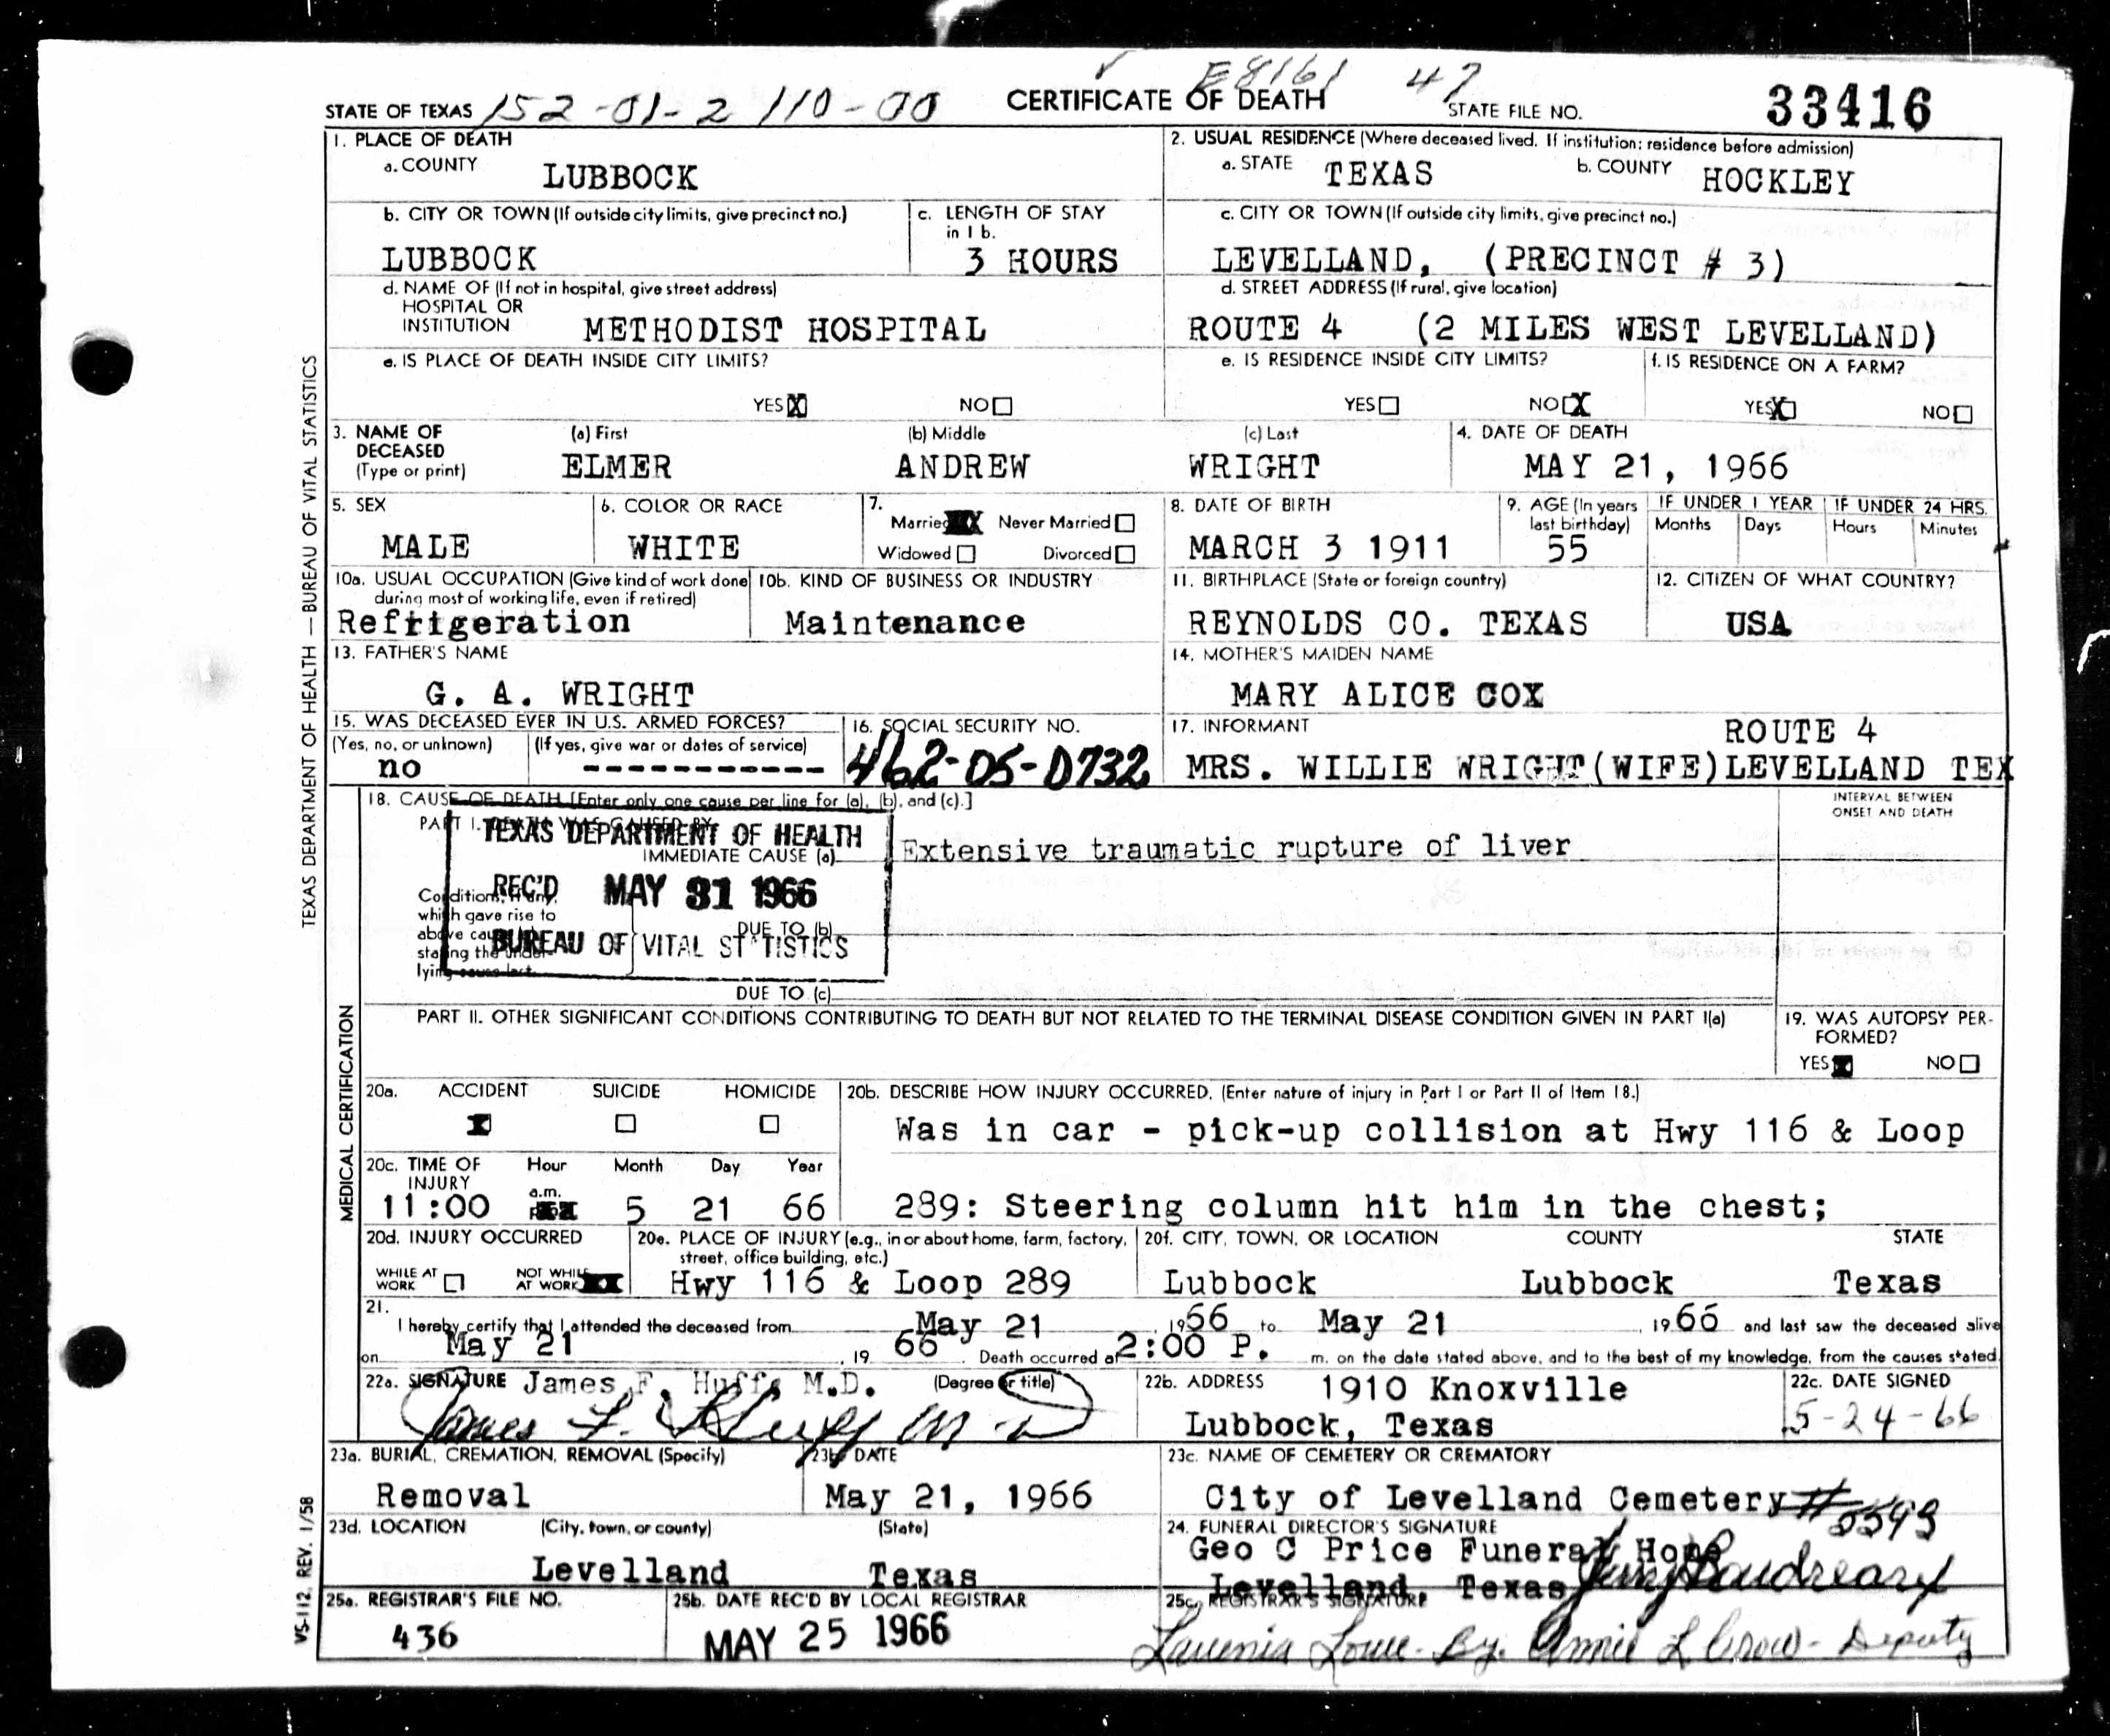 E8161 47
STATE OF TEXAS 152-01-2 110-00 CERTIFICATE OF DEATH STATE FILE NO. 33416
1. PLACE OF DEATH
a. COUNTY LUBBOCK
2. USUAL RESIDENCE (Where deceased lived. If institution: residence before admission)
a. STATE TEXAS b. COUNTY HOCKLEY
b. CITY OR TOWN (If outside city limits, give precinct no.)
LUBBOCK
c. LENGTH OF STAY in 1 b.
3 HOURS
c. CITY OR TOWN (If outside city limits, give precinct no.)
LEVELLAND, (PRECINCT # 3)
d. NAME OF (If not in hospital, give street address)
HOSPITAL OR
INSTITUTION METHODIST HOSPITAL
d. STREET ADDRESS (If rural, give location)
ROUTE 4 (2 MILES WEST LEVELLAND)
e. IS PLACE OF DEATH INSIDE CITY LIMITS?
YES X NO
e. IS RESIDENCE INSIDE CITY LIMITS?
YES NO X
f. IS RESIDENCE ON A FARM?
YES X NO
3. NAME OF DECEASED (Type or print)
(a) First (b) Middle (c) Last
ELMER ANDREW WRIGHT
4. DATE OF DEATH
MAY 21, 1966
5. SEX
MALE
6. COLOR OR RACE
WHITE
7.
Married XX Never Married
Widowed Divorced
8. DATE OF BIRTH
MARCH 3 1911
9. AGE (In years last birthday)
55
IF UNDER 1 YEAR
Months Days
IF UNDER 24 HRS.
Hours Minutes
10a. USUAL OCCUPATION (Give kind of work done during most of working life, even if retired)
Refrigeration
10b. KIND OF BUSINESS OR INDUSTRY
Maintenance
11. BIRTHPLACE (State or foreign country)
REYNOLDS CO. TEXAS
12. CITIZEN OF WHAT COUNTRY?
USA
13. FATHER'S NAME
G. A. WRIGHT
14. MOTHER'S MAIDEN NAME
MARY ALICE COX
15. WAS DECEASED EVER IN U.S. ARMED FORCES?
(Yes, no, or unknown) (If yes, give war or dates of service)
no ------------
16. SOCIAL SECURITY NO.
462-05-0732
17. INFORMANT ROUTE 4
MRS. WILLIE WRIGHT(WIFE)LEVELLAND TEX
18. CAUSE OF DEATH [Enter only one cause per line for (a), (b), and (c).]
INTERVAL BETWEEN
ONSET AND DEATH
PART I. DEATH WAS CAUSED BY
IMMEDIATE CAUSE (a) Extensive traumatic rupture of liver
TEXAS DEPARTMENT OF HEALTH
REC'D MAY 31 1966
BUREAU OF VITAL STATISTICS
Conditions, if any, which gave rise to above cause stating the under-lying cause last.
DUE TO (b)
DUE TO (c)
PART II. OTHER SIGNIFICANT CONDITIONS CONTRIBUTING TO DEATH BUT NOT RELATED TO THE TERMINAL DISEASE CONDITION GIVEN IN PART I(a)
19. WAS AUTOPSY PER-
FORMED?
YES X NO
20a. ACCIDENT SUICIDE HOMICIDE
X
20b. DESCRIBE HOW INJURY OCCURRED. (Enter nature of injury in Part I or Part II of Item 18.)
Was in car - pick-up collision at Hwy 116 & Loop
289: Steering column hit him in the chest;
20c. TIME OF INJURY Hour Month Day Year
11:00 a.m. 5 21 66
20d. INJURY OCCURRED
WHILE AT WORK NOT WHILE AT WORK XX
20e. PLACE OF INJURY (e.g., in or about home, farm, factory, street, office building, etc.)
Hwy 116 & Loop 289
20f. CITY, TOWN, OR LOCATION COUNTY STATE
Lubbock Lubbock Texas
21.
I hereby certify that I attended the deceased from May 21, 1966 to May 21, 1966 and last saw the deceased alive
on May 21, 19 66. Death occurred at 2:00 P. m. on the date stated above, and to the best of my knowledge, from the causes stated.
22a. SIGNATURE James F. Huff, M.D. (Degree or title)
James F. Huff M D
22b. ADDRESS 1910 Knoxville
Lubbock, Texas
22c. DATE SIGNED
5-24-66
23a. BURIAL, CREMATION, REMOVAL (Specify)
Removal
23b. DATE
May 21, 1966
23c. NAME OF CEMETERY OR CREMATORY
City of Levelland Cemetery #5593
23d. LOCATION (City, town, or county) (State)
Levelland Texas
24. FUNERAL DIRECTOR'S SIGNATURE
Geo C Price Funeral Home
Levelland, Texas
25a. REGISTRAR'S FILE NO.
436
25b. DATE REC'D BY LOCAL REGISTRAR
MAY 25 1966
25c. REGISTRAR'S SIGNATURE
Lavenia Lowe - By. Annie L Crow - Deputy
TEXAS DEPARTMENT OF HEALTH — BUREAU OF VITAL STATISTICS
MEDICAL CERTIFICATION
VS-112. REV. 1/58